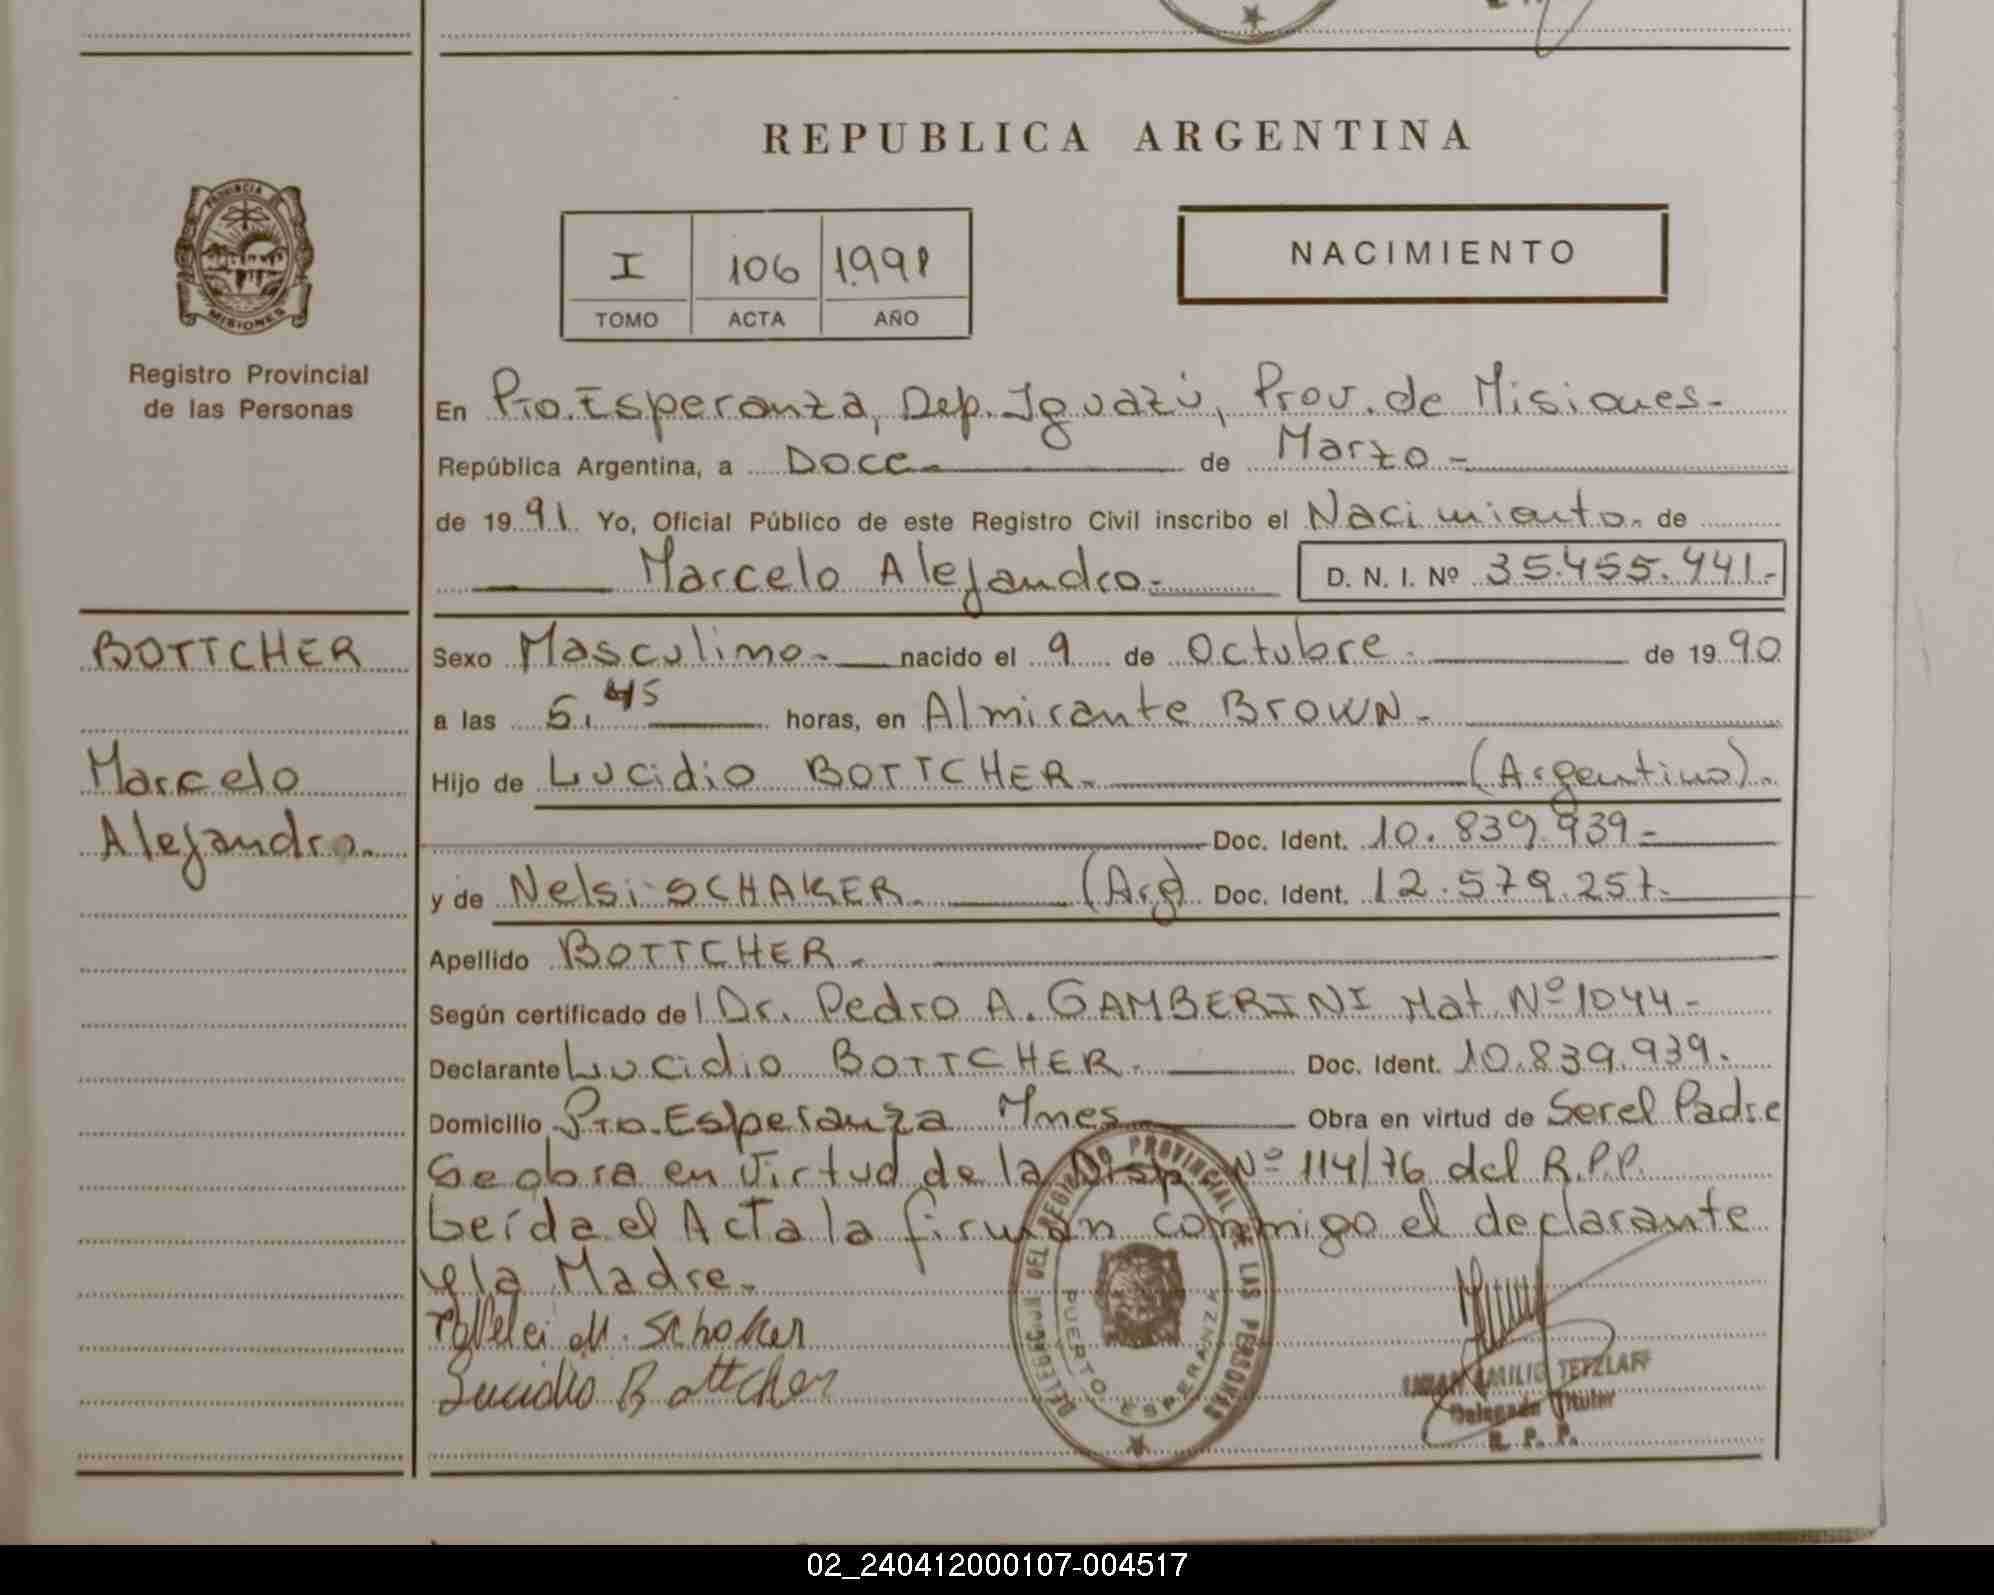 REPUBLICA ARGENTINA
PROVINCIA
MISIONES
Registro Provincial
de las Personas
I 106 1.991
TOMO ACTA AÑO
NACIMIENTO
En Pto. Esperanza, Dep. Iguazú, Prov. de Misiones.-
República Argentina, a Doce.- de Marzo.-
de 1991. Yo, Oficial Público de este Registro Civil inscribo el Nacimiento. de
Marcelo Alejandro.- D. N. I. Nº 35.455.441.-
BOTTCHER
Marcelo
Alejandro.
Sexo Masculino.- nacido el 9 de Octubre.- de 1990
a las 5,45 horas, en Almirante BROWN.-
Hijo de Lucidio BOTTCHER.- (Argentino).-
Doc. Ident. 10.839.939.-
y de Nelsi SCHAKER.- (Arg) Doc. Ident. 12.579.257.-
Apellido BOTTCHER.-
Según certificado de Dr. Pedro A. GAMBERINI Mat. Nº 1044-
Declarante Lucidio BOTTCHER.- Doc. Ident. 10.839.939.-
Domicilio Pto. Esperanza Mnes.- Obra en virtud de Ser el Padre
Se obra en Virtud de la Disp. Nº 114/76 del R.P.P.
Leída el Acta la firman conmigo el declarante
y la Madre.
M. Schoker
Lucidio Bottcher
DELEGACION DEL REGISTRO PROVINCIAL DE LAS PERSONAS
PUERTO ESPERANZA
EMILIO TETZLAFF
Delegado Titular
R. P. P.
02_240412000107-004517